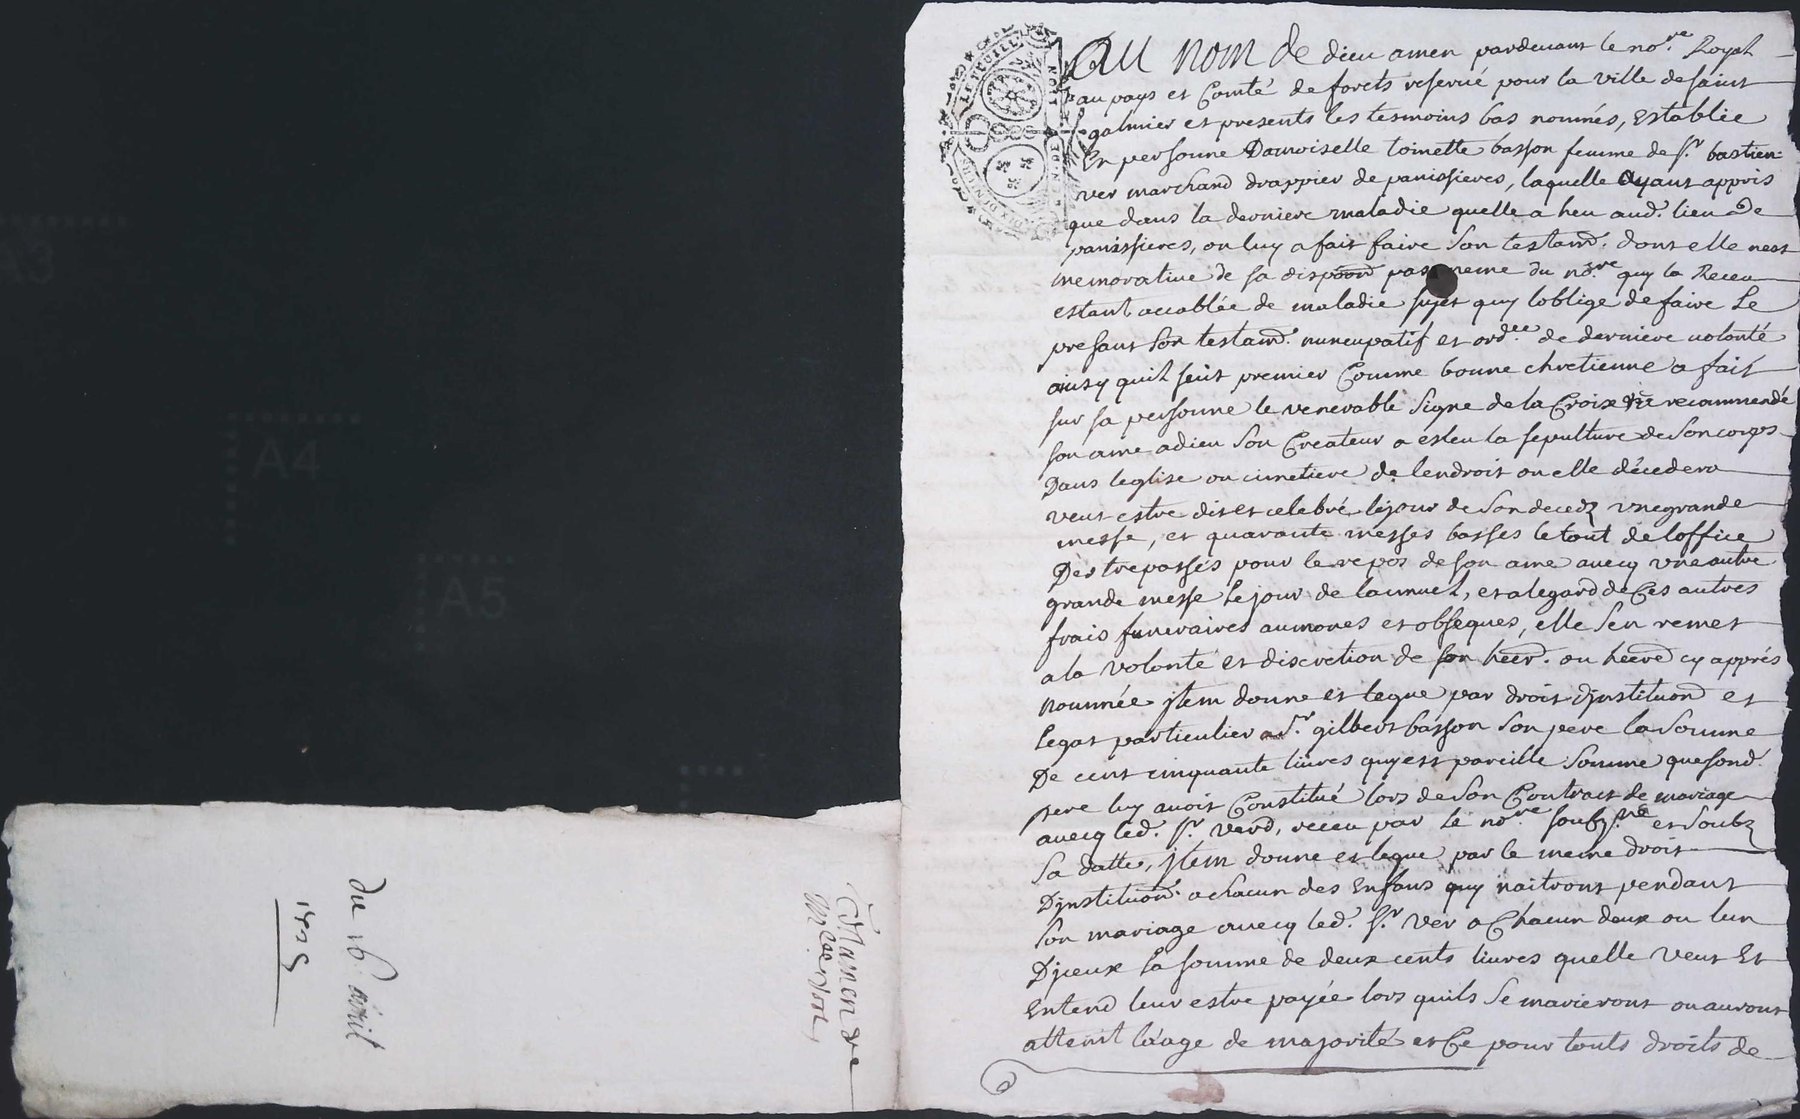 Au nom de dieu amen pardevant le no.re Royal
au pays et Comté de forets reservé pour la ville de saint
galmier et presents les tesmoins bas nommés, Establie
En personne Damoiselle toinette basson femme de Sr. bastien
ver marchand drappier de panissieres, laquelle ayant appris
que dans la derniere maladie quelle a heu aud. lieu de
panissieres, on luy a fait faire son testam. dont elle nest
memorative de sa dispoon pas meme du no.re quy la Receu
estant accablée de maladie sujet quy loblige de faire le
presant son testam. nuncupatif et ord.ce de derniere volonté
ainsy quil suit premier Comme bonne chretienne a fait
sur sa personne le venerable signe de la Croix recommendé
son ame a dieu son Createur a esleu la sepulture de son corps
Dans leglise ou cimetiere de lendroit ou elle décedera
veut estre dit et celebré le jour de son decedz une grande
messe, et quarante messes basses le tout de loffice
Des trepassés pour le repos de son ame avecq une autre
grande messe le jour de lannuel, et a legard de Ces autres
frais funeraires aumones et obseques, elle sen remet
a la volonté et discretion de son heer. ou heere cy apprés
nommée jtem donne et legue par droit djnstituon et
legat particulier a Sr. gilbert basson son pere la somme
De cent cinquante livres quy est pareille somme que sond.
pere luy avoit Constitué lors de son Contract de mariage
avecq led. Sr. Verd, receu par le no.re soubz.né et soubz
sa datte, jtem donne et legue par le meme droit
Djnstituon a chacun des Enfans quy naitront pendant
son mariage avecq led. Sr. Ver a Chacun deux ou lun
Djceux la somme de deux cents livres quelle veut Et
Entend leur estre payée lors quils se marieront ou auront
atteint laage de majorité et Ce pour touts droits de
du 16 avril
A3
A4
A5